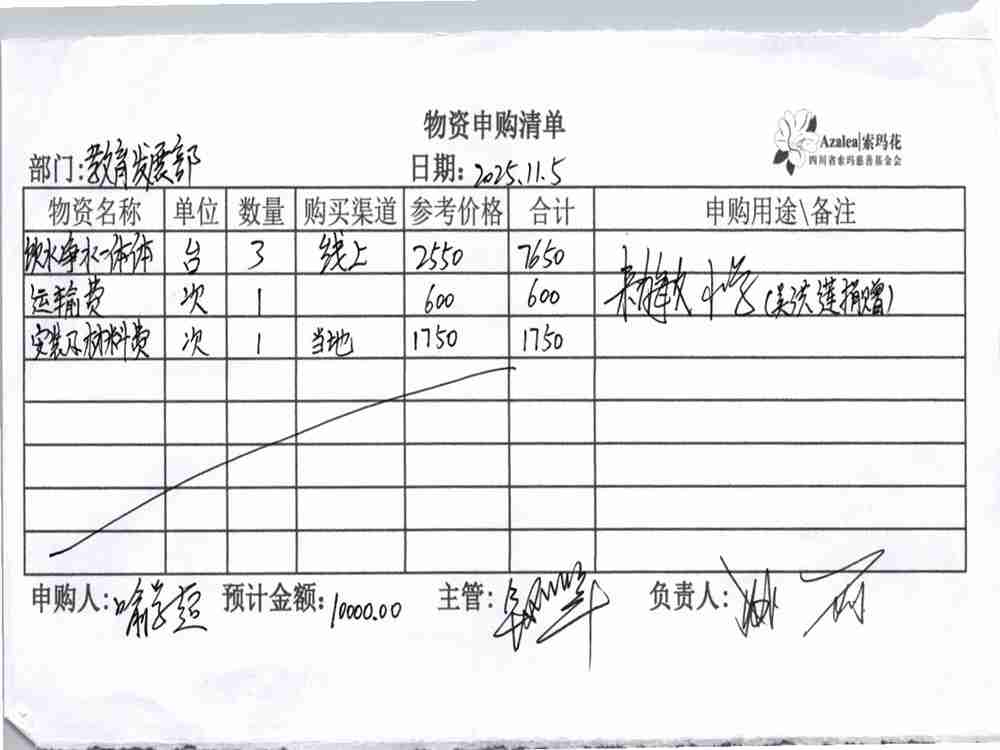 物资申购清单
Azalea|索玛花
四川省索玛慈善基金会
部门:教育发展部 日期:2025.11.5
物资名称 单位 数量 购买渠道 参考价格 合计 申购用途\备注
饮水净水一体体 台 3 线上 2550 7650
运输费 次 1 600 600 小学(吴洪莲捐赠)
安装及材料费 次 1 当地 1750 1750
申购人: 预计金额:10000.00 主管: 负责人: